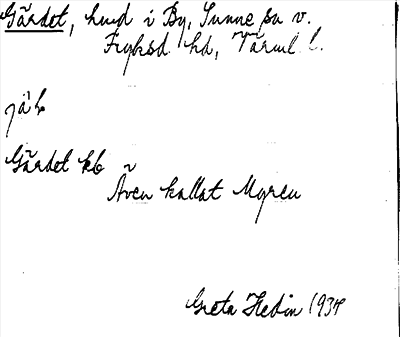 Gärdet, hmd i By, Sunne sn v.
Fryksd hd, Värml l.
jä b
Gärdet kb
Även kallat Myren
Greta Hedin 1934